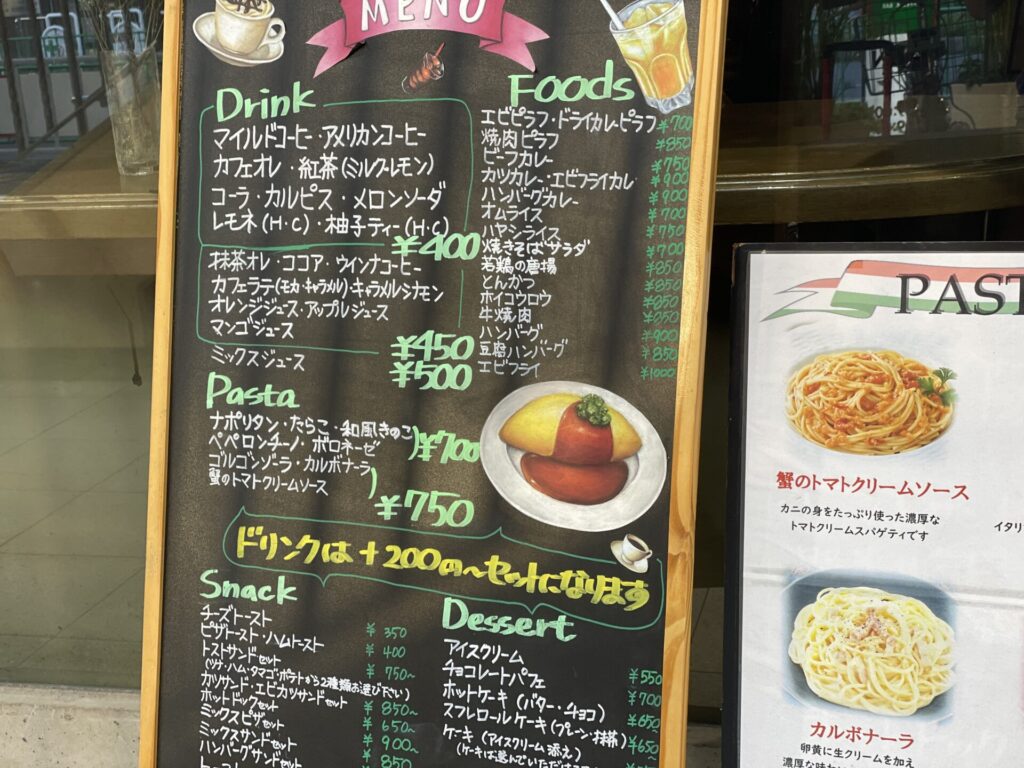 MENU
Drink
マイルドコーヒー・アメリカンコーヒー
カフェオレ・紅茶(ミルク・レモン)
コーラ・カルピス・メロンソーダ
レモネ(H・C)・柚子ティー(H・C)
¥400
抹茶オレ・ココア・ウィンナコーヒー
カフェラテ(モカ キャラメル)キャラメルシナモン
オレンジジュース・アップルジュース
マンゴジュース
¥450
ミックスジュース
¥500
Foods
エビピラフ・ドライカレーピラフ ¥700
焼肉ピラフ ¥850
ビーフカレー ¥750
カツカレー・エビフライカレー ¥900
ハンバーグカレー ¥900
オムライス ¥700
ハヤシライス ¥750
焼きそば サラダ ¥700
若鶏の唐揚 ¥850
とんかつ ¥850
ホイコウロウ ¥850
牛焼肉 ¥950
ハンバーグ ¥900
豆腐ハンバーグ ¥850
エビフライ ¥1000
Pasta
ナポリタン・たらこ・和風きのこ
ペペロンチーノ・ボロネーゼ ) ¥700
ゴルゴンゾーラ・カルボナーラ
蟹のトマトクリームソース ) ¥750
ドリンクは+200の~セットになります
Snack
チーズトースト ¥350
ピザトースト・ハムトースト ¥400
トストサンドセット ¥750~
(ツナ・ハム・タマゴ・ポテトから2種類お選び下さい)
カツサンド・エビカツサンドセット ¥850~
ホットドックセット ¥650~
ミックスピザセット ¥900~
ミックスサンドセット ¥850
ハンバーグサンドセット
Dessert
アイスクリーム
チョコレートパフェ ¥550
ホットケーキ(バター・チョコ) ¥700
スフレロールケーキ(プレーン・抹茶) ¥650
ケーキ(アイスクリーム添え) ¥650~
PAST
蟹のトマトクリームソース
カニの身をたっぷり使った濃厚な
トマトクリームスパゲティです
イタリ
カルボナーラ
卵黄に生クリームを加え
濃厚な味わ